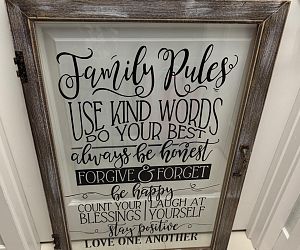 Family Rules
USE KIND WORDS
DO YOUR BEST
always be honest
FORGIVE & FORGET
be happy
COUNT YOUR BLESSINGS
LAUGH AT YOURSELF
stay positive
LOVE ONE ANOTHER